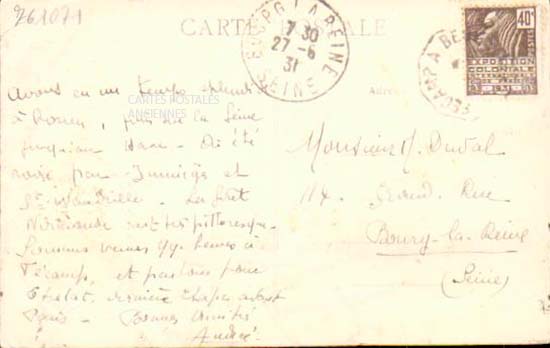 761071
CARTE POSTALE
BOURG LA REINE
7 30
27-6
31
SEINE
40c
EXPOSITION
COLONIALE
INTERNATIONALE
FECAMP A BE
CARTES POSTALES
ANCIENNES
Avons eu un temps splendide
à Rouen, puis la Seine
jusqu'au
par Jumièges et
St Wandrille - La forêt
Normande est très pittoresque -
Sommes venus qq. heures à
Fécamp, et partons pour
Etretat, dernière étape avant
Paris - Bonnes amitiés
André.
Adre
Monsieur M. Duval
114 Grand Rue
Bourg-la-Reine
(Seine)